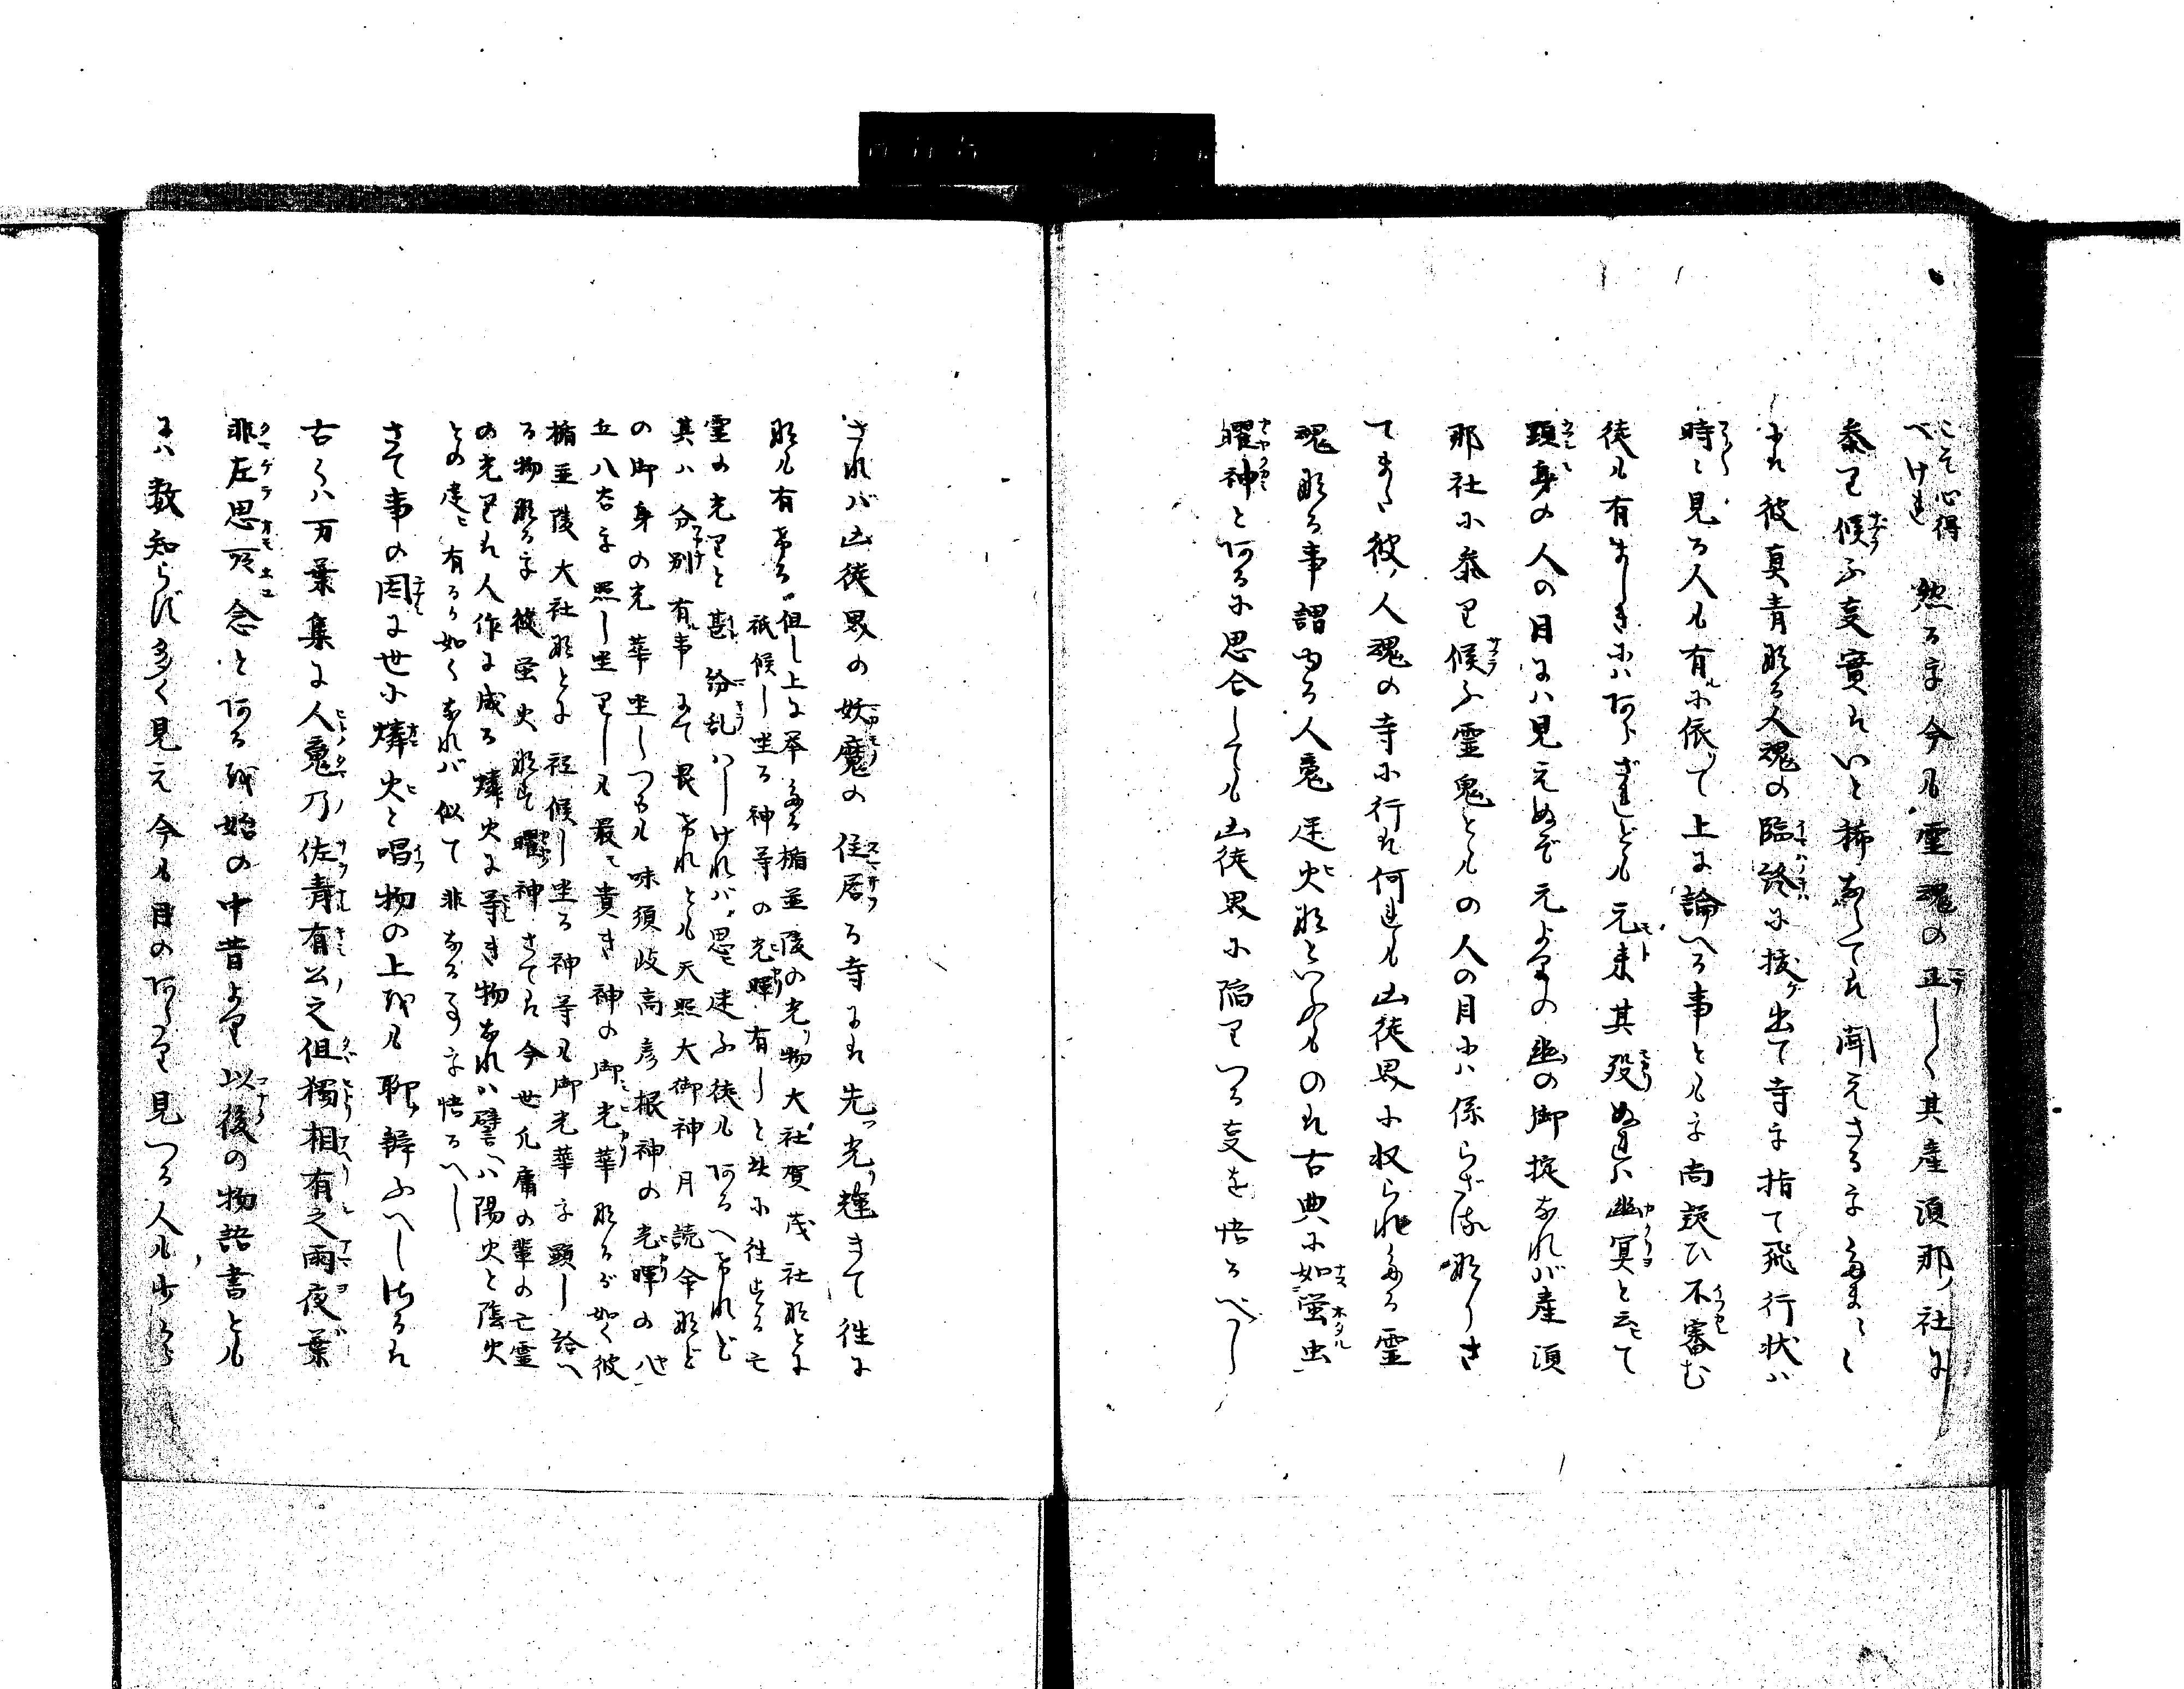 こそ心得
べけれ 然るを今も霊魂の正しく其産須那ノ社に
参り候ふ事実はいと稀なりては聞えさるをたまゝゝ
かれ彼真青なる人魂の臨終に抜ケ出て寺を指て飛行状ハ
時々見る人も有ルに依て上に論へる事ともを尚疑ひ不審む
徒も有ましきにハあらざれども元来其殁ぬれハ幽冥と云て
顕身の人の目にハ見えぬぞ元よりの幽の御掟なれば産須
那社に参り候ふ霊鬼ともの人の目にハ係らざるなりさ
てまた彼ノ人魂の寺に行は何れも凶徒界に収られたる霊
魂なる事謂ゆる人魂ノ火などいふものは古典に如螢虫
曜神とあるに思合しても凶徒界に陥りつる事を悟るべし
されバ凶徒界の妖魔の住居る寺には先ツ光リ輝きて往に
なも有ける 但し上に挙たる楯並陵の光リ物大社賀茂社などに
祇候し坐る神等の光暉有しと共に往する亡
霊の光りと甚紛乱ハしければ思ヒ迷ふ徒もあるへけれど
其ハ分別有ル事にて畏けれとも天照大御神月読命など
の御身の光華坐しつるも味須岐高彦根神の光暉の八
丘八谷を照し坐りしも最も貴き神の御光華なるが如く彼
楯並陵大社などに祇候し坐る神等も御光華を顕し給へ
る物なるを彼螢火なす曜神さては今世凡庸の輩の亡霊
の光りは人作に成る燐火に等き物なれハ譬へハ陽火と陰火
との違ヒ有るか如くなれバ似て非なる事を悟るへし
さて事の因に世に燐火と唱物の上をも聊辨ふへしそるは
古くハ万葉集に人魂乃佐青有公之但獨相有之雨夜葉
非左思所念とあるを始め中昔より以後の物語書とも
にハ数知らず多く見え今も目のあたり見つる人も少から